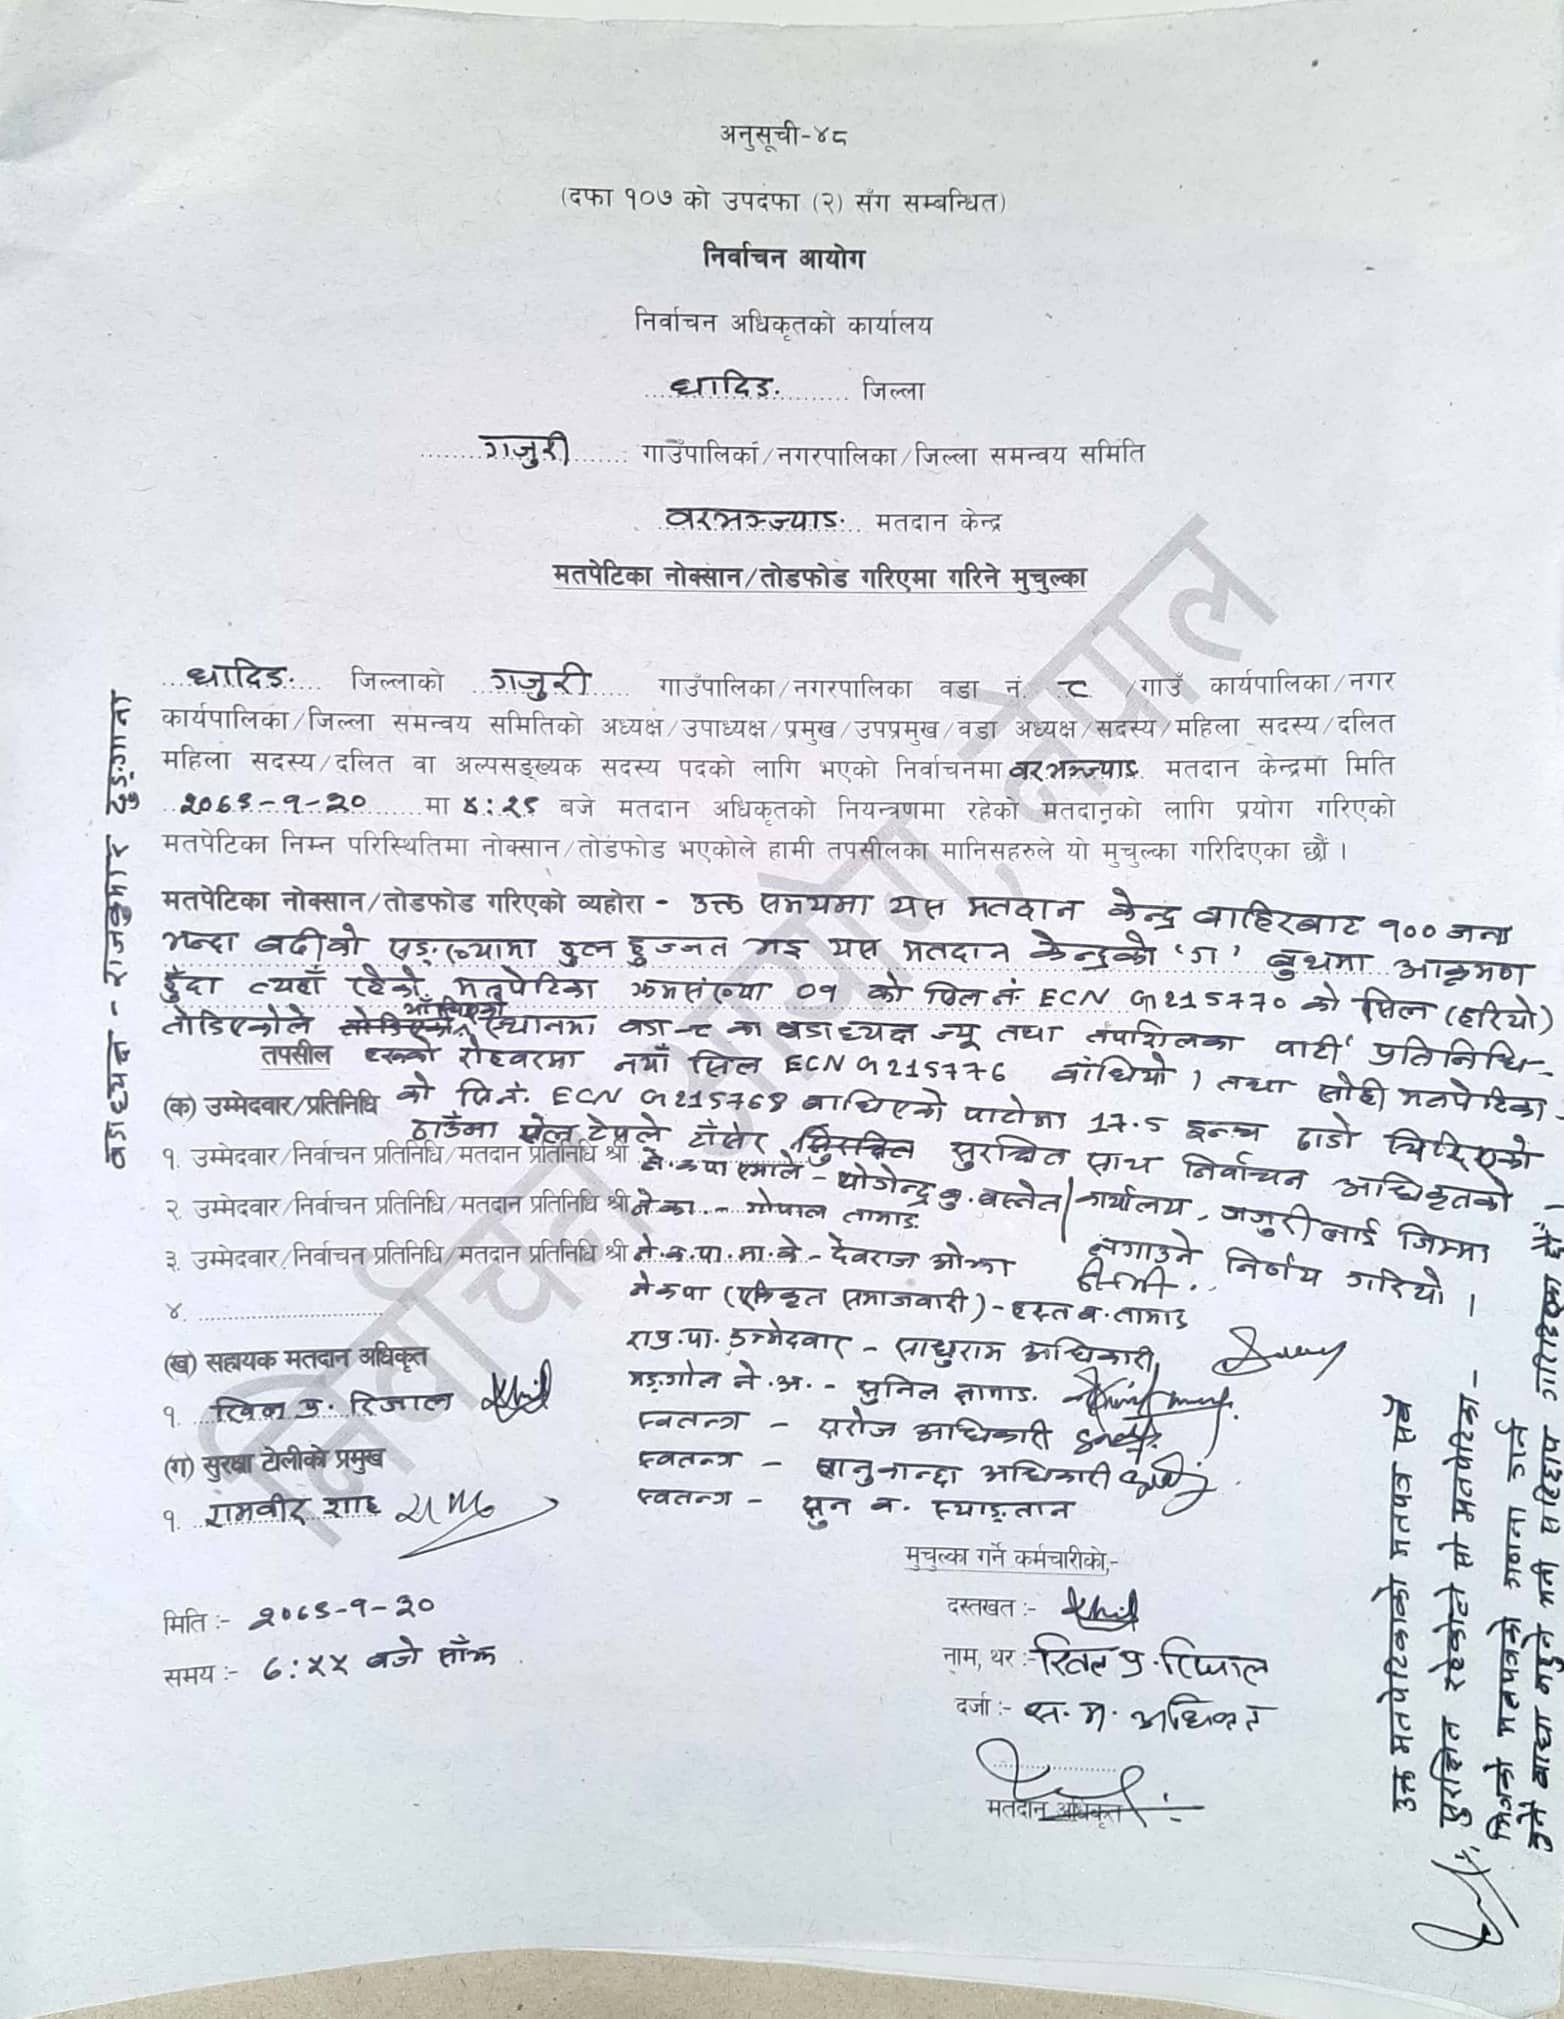 अनुसूची-४८
(दफा १०७ को उपदफा (२) सँग सम्बन्धित)
निर्वाचन आयोग
निर्वाचन अधिकृतको कार्यालय
धादिङ जिल्ला
गजुरी गाउँपालिका/नगरपालिका/जिल्ला समन्वय समिति
वरभञ्ज्याङ मतदान केन्द्र
मतपेटिका नोक्सान/तोडफोड गरिएमा गरिने मुचुल्का
धादिङ जिल्लाको गजुरी गाउँपालिका/नगरपालिका वडा नं. ८ /गाउँ कार्यपालिका/नगर
कार्यपालिका/जिल्ला समन्वय समितिको अध्यक्ष/उपाध्यक्ष/प्रमुख/उपप्रमुख/वडा अध्यक्ष/सदस्य/महिला सदस्य/दलित
महिला सदस्य/दलित वा अल्पसङ्ख्यक सदस्य पदको लागि भएको निर्वाचनमा वरभञ्ज्याङ मतदान केन्द्रमा मिति
२०७९-१-३० मा बजे मतदान अधिकृतको नियन्त्रणमा रहेको मतदानको लागि प्रयोग गरिएको
मतपेटिका निम्न परिस्थितिमा नोक्सान/तोडफोड भएकोले हामी तपसीलका मानिसहरुले यो मुचुल्का गरिदिएका छौं ।
मतपेटिका नोक्सान/तोडफोड गरिएको व्यहोरा - उक्त समयमा यस मतदान केन्द्र बाहिरबाट १०० जना
भन्दा बढीको सङ्ख्यामा हुल हुज्जत भइ यस मतदान केन्द्रको 'ग' बुथमा आक्रमण
हुँदा त्यहाँ रहेको मतपेटिका क्रमसंख्या ०१ को सिल नं. ECN G215770 को सिल (हरियो)
तोडिएकोले स्थानमा वडा-८ का वडाध्यक्ष ज्यू तथा तपशिलका पार्टी प्रतिनिधि-
तपसील हरुको रोहवरमा नयाँ सिल ECN G215776 बाँधियो । तथा सोही मतपेटिका-
(क) उम्मेदवार/प्रतिनिधि को सि.नं. ECN G215768 बाधिएको पाटोमा 17.5 इन्च ठाडो चिरिएको
ठाउँमा सेल टेपले टाँसेर सुरक्षित साथ निर्वाचन अधिकृतको
कार्यालय, गजुरीलाई जिम्मा
लगाउने निर्णय गरियो ।
१. उम्मेदवार/निर्वाचन प्रतिनिधि/मतदान प्रतिनिधि श्री ने.क.पा एमाले - योगेन्द्र कु. बस्नेत
२. उम्मेदवार/निर्वाचन प्रतिनिधि/मतदान प्रतिनिधि श्री ने.का. - गोपाल तामाङ
३. उम्मेदवार/निर्वाचन प्रतिनिधि/मतदान प्रतिनिधि श्री ने.क.पा.मा.के - देवराज ओझा
४.
नेकपा (एकिकृत समाजवादी) - हस्त ब. तामाङ
रा.प्र.पा. उम्मेदवार - साधुराम अधिकारी
मङ्गोल ने.अ. - सुनिल तामाङ
स्वतन्त्र - सरोज अधिकारी
स्वतन्त्र - सानुकान्छा अधिकारी
स्वतन्त्र - सुन ब. स्याङ्तान
(ख) सहायक मतदान अधिकृत
१. प्र. रिजाल
(ग) सुरक्षा टोलीको प्रमुख
१. रामवीर शाह
मिति :- २०७९-१-३०
समय :- बजे साँझ
मुचुल्का गर्ने कर्मचारीको,-
दस्तखत :-
नाम, थर :- प्र. रिजाल
दर्जा :- स. म. अधिकृत
मतदान अधिकृत
वडाध्यक्ष - राजकुमार ढुङ्गाना
उक्त मतपेटिकाको मतपत्र सबै
सुरक्षित रहेकोले सो मतपेटिका-
भित्रको मतपत्रको गणना गर्न
कुनै बाधा नहुने गरी
निर्वाचन आयोग, नेपाल